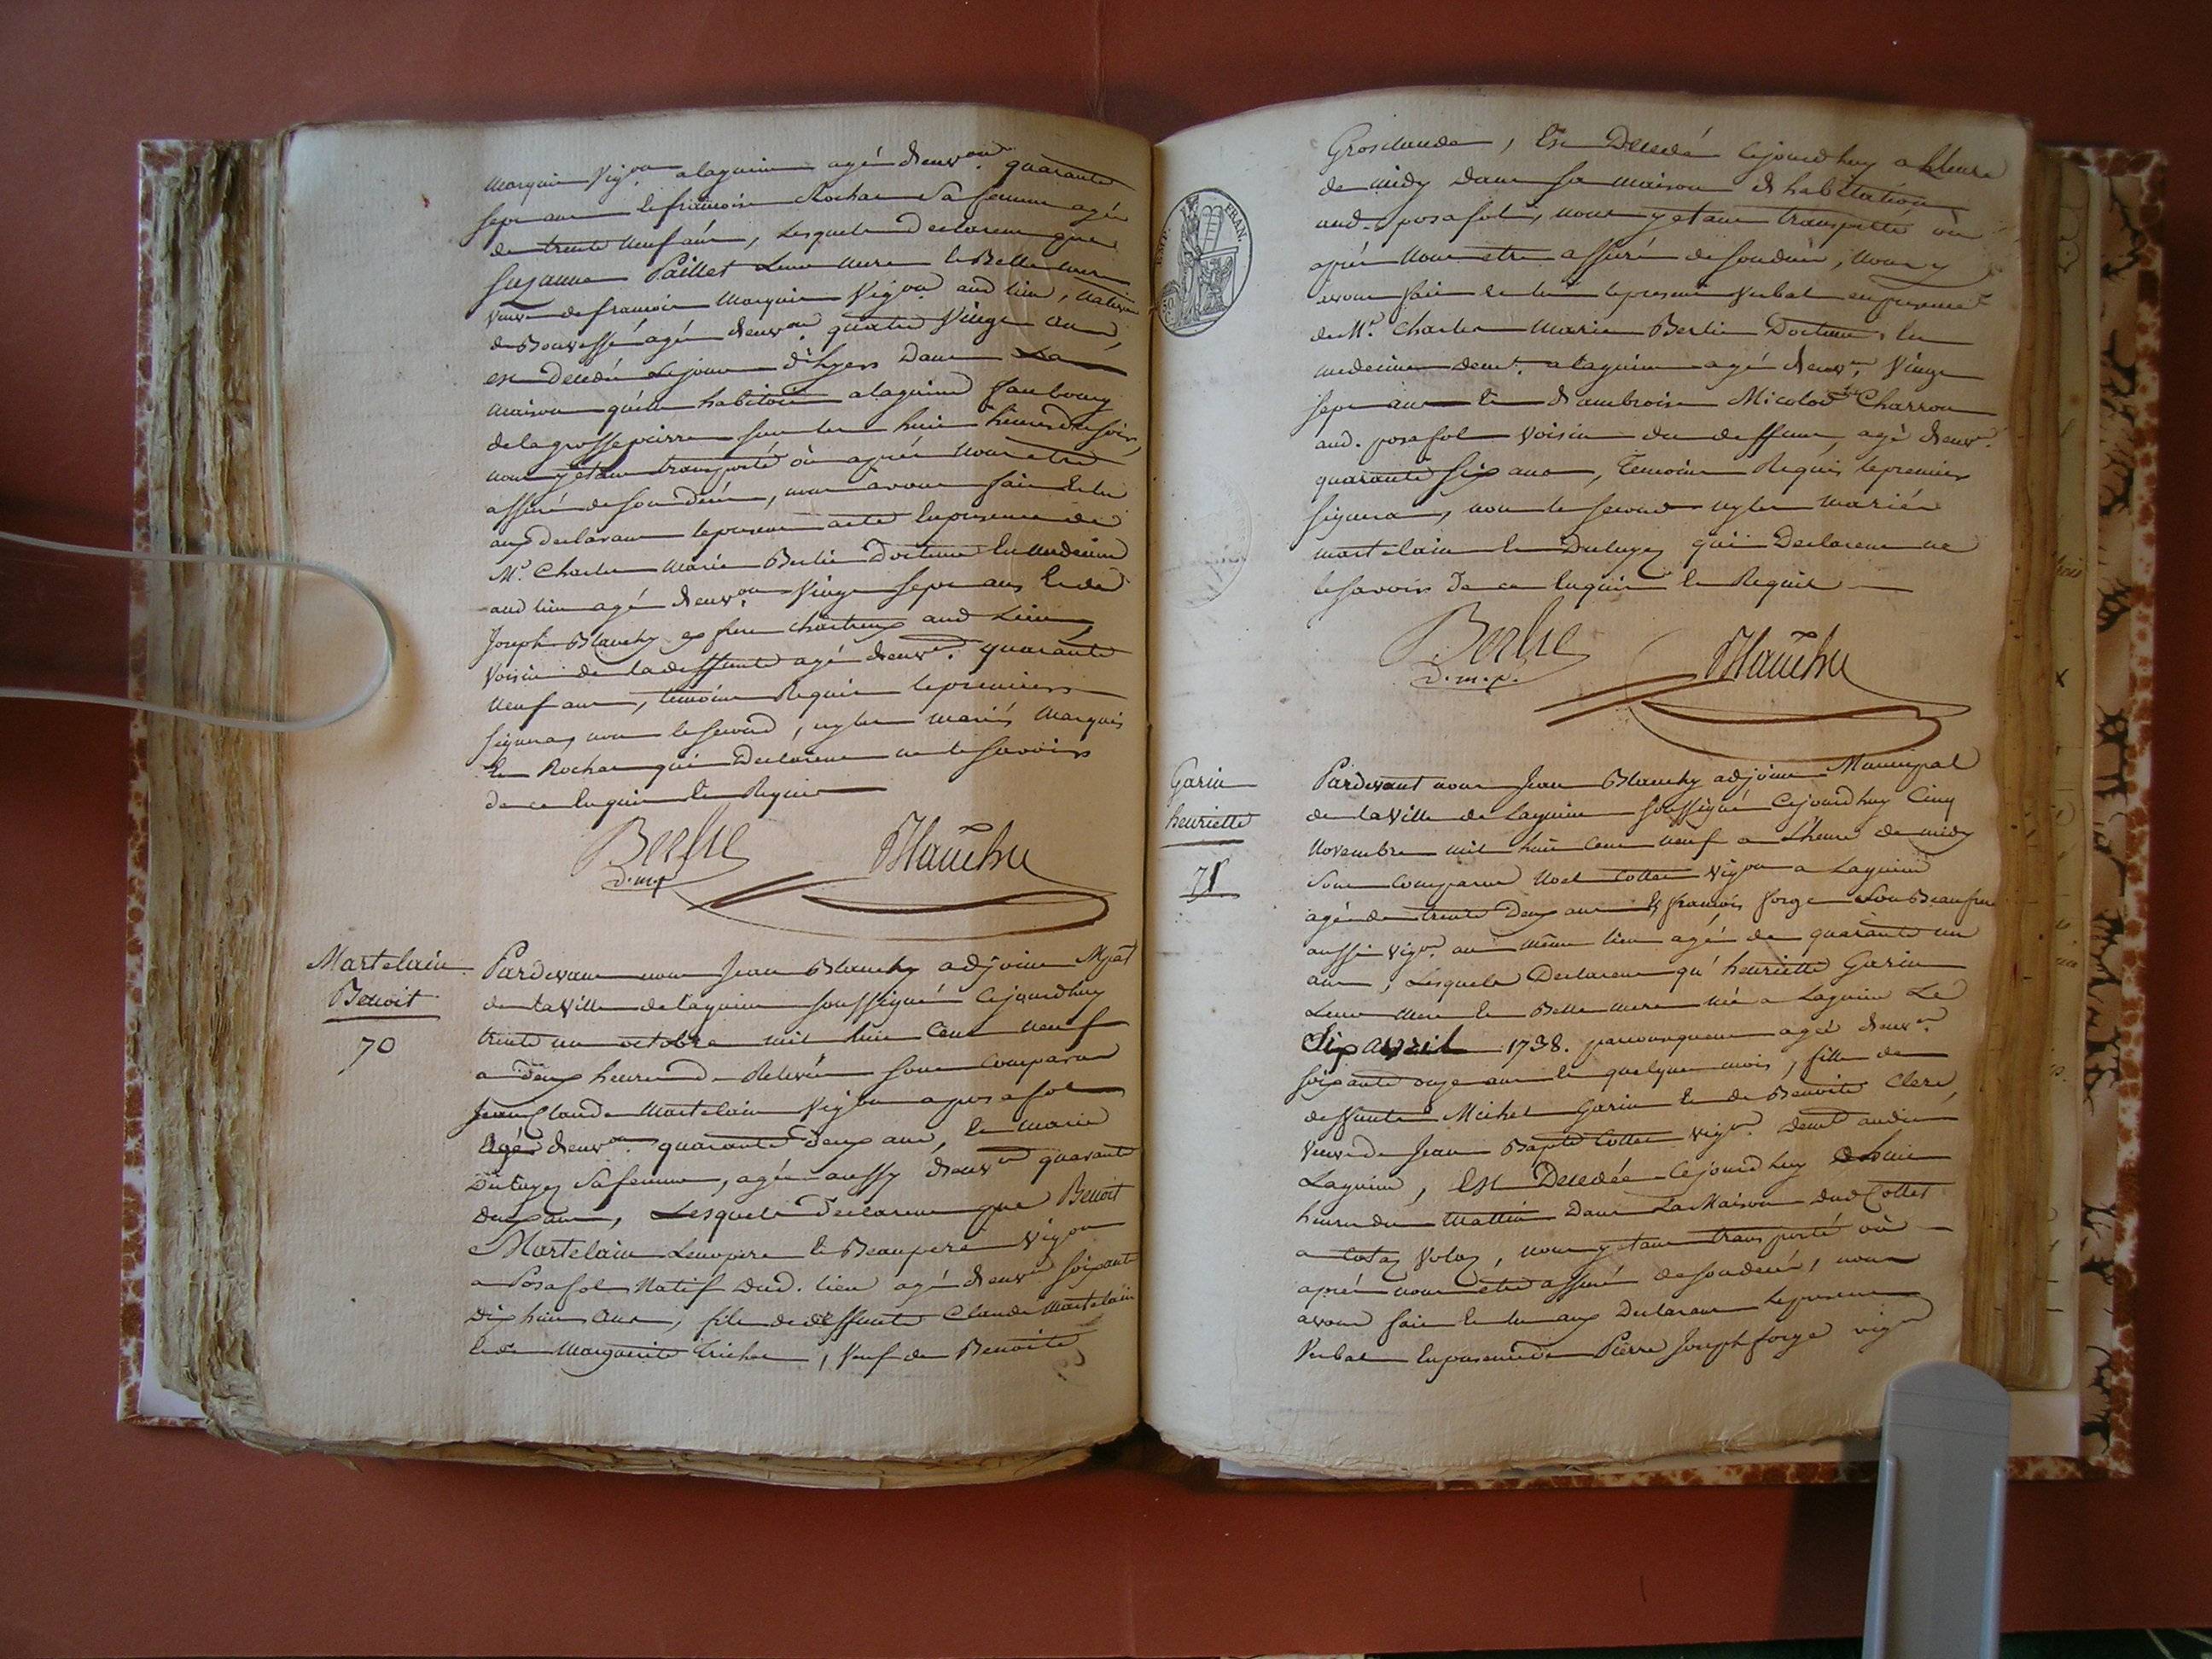 Marquis Vigon a lagnieu agé d'env.on quarante
sept ans et françoise Rochas Sa femme agée
de trente neuf ans, Lesquels Declarent que
Suzanne Paillet Leur mere et Belle mere
veuve de françois Marquis Vigon aud lieu, native
de agée d'env.on quatre Vingt ans,
est Decedée Le jour d'hyers Dans La
maison qu'elle habitoit a lagnieu faubourg
de la grosse pierre sur les huit heures du soir,
nous y étant transporté où après nous être
assuré de son décès, nous avons fait et lu
aux declarants le present acte En presence de
Mr. Charles Marie Berlie Docteur En medecine
aud lieu agé d'env.on Vingt sept ans et de
Joseph Blanchy ex frere chartreux aud Lieu,
Voisin de la deffunte agé d'env.on quarante
neuf ans, temoins Requis le premiers
signera, non le second, ny les mariés Marquis
et Rochas qui Declarent ne le savoirs
de ce Enquis et Requis
Berlie
d.m.p.
Blanchy
Martelain
Benoit
70
Pardevant nous Jean Blanchy adjoint Mpal
de la Ville de lagnieu soussigné Cejourd'huy
trente un octobre mil huit Cent neuf
a deux heures de Relevée sont Comparus
Jean Claude Martelain Vigon a posafol
Agé d'env.on quarante deux ans, et marie
Duluyez Sa femme, agée aussy d'env.on quarante
deux ans, Lesquels Declarent que Benoit
Martelain Leur pere et Beaupere Vigon
a Posafol Natif Dud. lieu agé d'env.on soixante
Dix huit Ans, fils de deffunts Claude Martelain
et de Marguerite Trichon, Veuf de Benoite
EMP. FRAN.
Grosclaude, Est Decedé Cejourd'huy a L'heure
de midy Dans sa maison d'habitation
aud. posafol, nous y etant transporté où
après nous etre assuré de son décès, nous y
avons fait et lu le present Verbal en presence
de Mr. Charles Marie Berlie Docteur En
medecine demt. a lagnieu agé d'env.on Vingt
sept ans et d'ambroise Nicolod Charron
aud. posafol voisin du deffunt, agé d'env.
quarante six ans, Temoins Requis le premier
signera, non le second ny les mariés
martelain et Duluyez qui Declarent ne
le savoirs De ce Enquis et Requis
Berlie
d.m.p.
Blanchy
Garin
henriette
71
Pardevant nous Jean Blanchy adjoint Municipal
de la Ville de Lagnieu soussigné Cejourd'huy Cinq
Novembre mil huit Cent neuf a L'heure de midy
Sont Comparus Noel Cottet vigon a Lagnieu
agé de trente Deux ans et françois forge son Beaufrere
aussi vigon au même lieu agé de quarante un
ans, Lesquels Declarent qu'henriette Garin
Leur mere et Belle mere née a Lagnieu Le
Six avril 1738. par consequent agée d'env.on
soixante onze ans et quelques mois, fille de
deffunts Michel Garin et de Benoite Clerc,
Veuve de Jean Baptte Cottet vigon demt audit
Lagnieu, Est Decedée Cejourd'huy a huit
heures du Mattin Dans La Maison dud Cottet
a Cotaz Volaz, nous y etant transporté où
après nous être assuré de son decés, nous
avons fait et lu aux Declarants le present
Verbal En presence de Pierre Joseph forge vigon